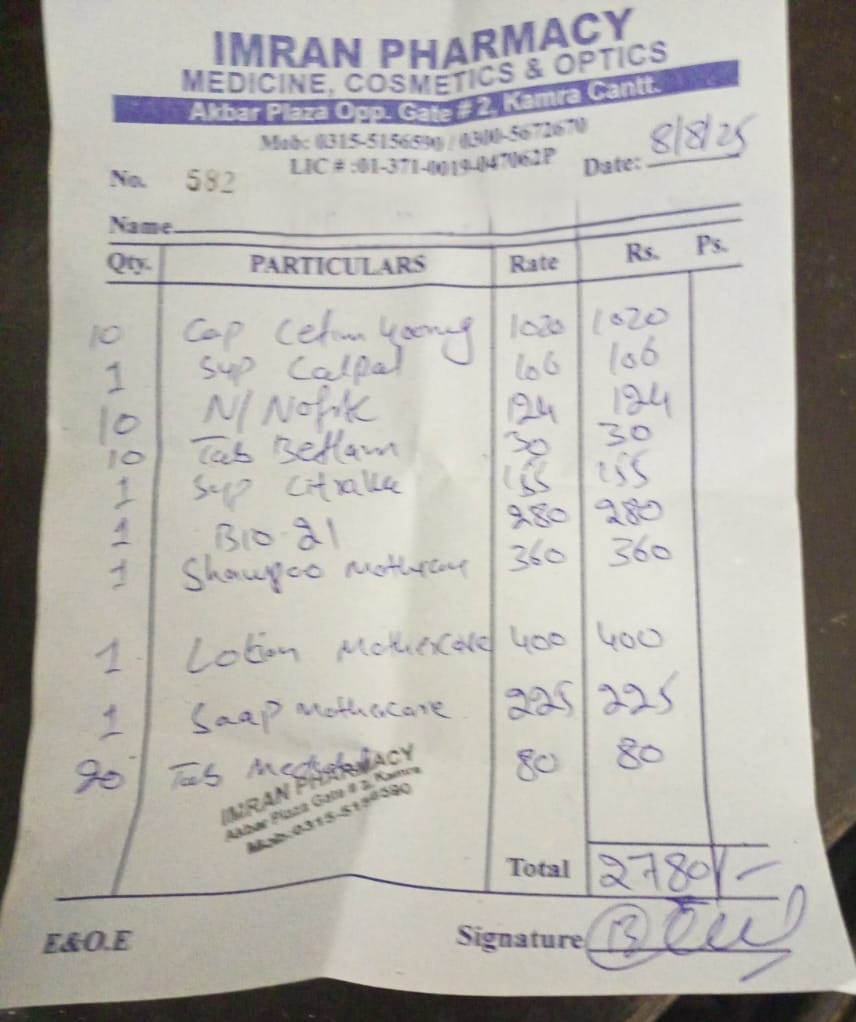 IMRAN PHARMACY
MEDICINE, COSMETICS & OPTICS
Akbar Plaza Opp. Gate # 2, Kamra Cantt.
Mob: 0315-5156590 / 0300-5672670
LIC # :01-371-0019-047062P
No. 592 Date: 8/8/25
Name
Qty. PARTICULARS Rate Rs. Ps.
10 Cap 1020 1020
1 Syp Calpol 106 106
10 N/ 124 124
10 Tab 30 30
1 Syp 155 155
1 Bio-21 280 280
1 Shampoo Mothercare 360 360
1 Lotion Mothercare 400 400
1 Saap Mothercare 225 225
20 Tab 80 80
IMRAN PHARMACY
Akbar Plaza Gate # 2, Kamra
Mob: 0315-5156590
Total 2780/-
E&O.E Signature